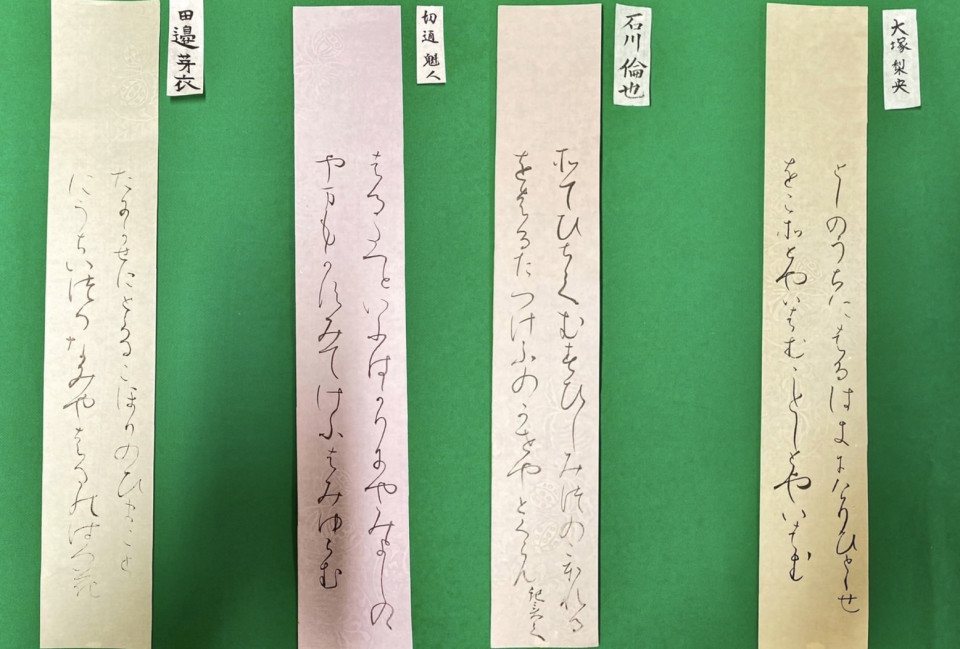 大塚梨央
としのうちにはるはきにけりひとゝせ
をこそとやいはむことしとやいはむ
石川倫也
そてひちてむすひしみつのこほれる
をはるたつけふのかせやとくらん
切通魁人
はるたつといふはかりにやみよしの
やまもかすみてけふはみゆらむ
田邉芽衣
たにかせにとくるこほりのひまこと
にうちいつるなみやはるのはつ花